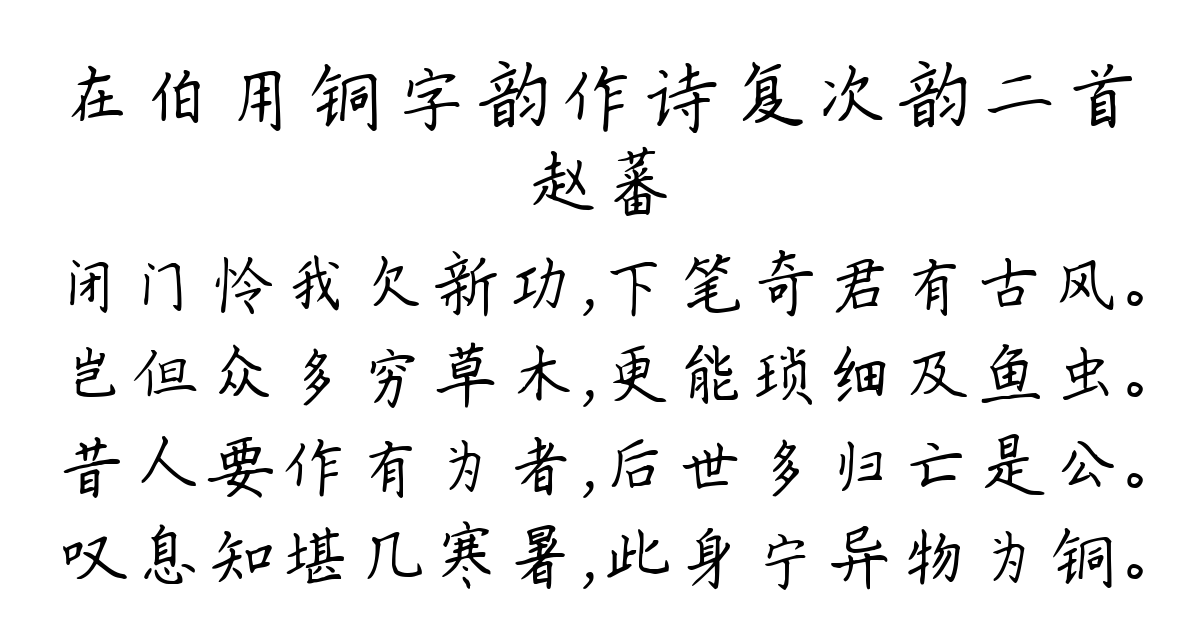 在伯用铜字韵作诗复次韵二首
赵蕃
闭门怜我欠新功,下笔奇君有古风。
岂但众多穷草木,更能琐细及鱼虫。
昔人要作有为者,后世多归亡是公。
叹息知堪几寒暑,此身宁异物为铜。